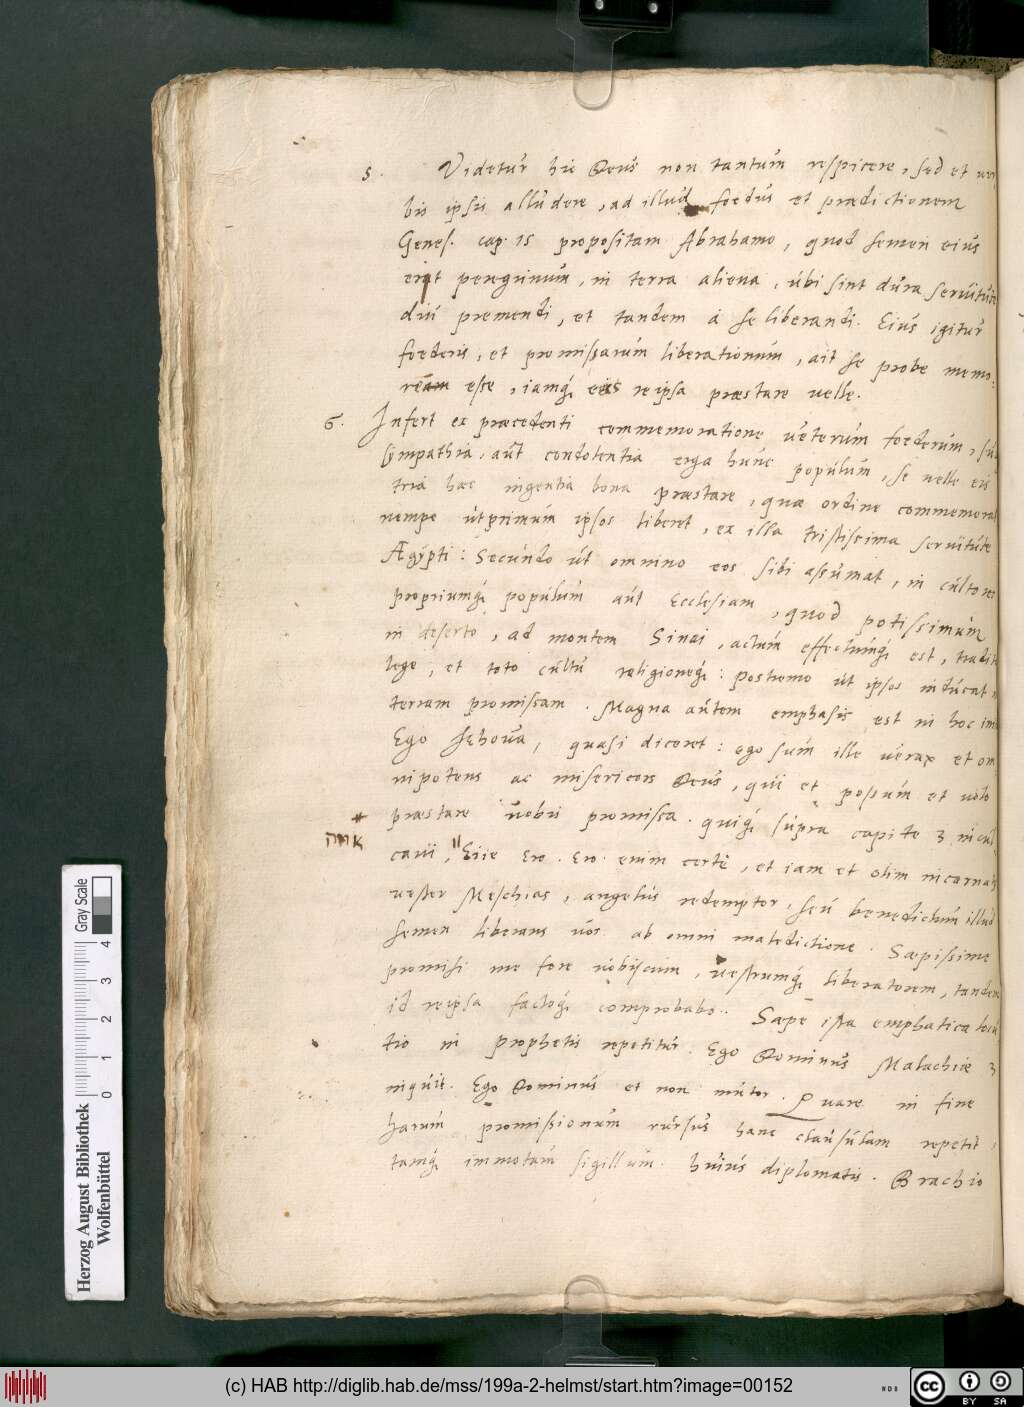 5. Videtur hic Deus non tantum respicere, sed et ver
bis ipsis alludere, ad illud foedus et praedictionem
Genes. cap. 15 propositam Abrahamo, quod semen eius
erit peregrinum, in terra aliena, ubi sint dura servitute
diu premendi, et tandem à se liberandi. Eius igitur
foederis, et promissarum liberationum, ait se probe memo:
rem esse, iamq; reipsa praestare velle.
6. Infert ex praecedenti commemoratione veterum foederum,
sympathia, aut condolentia erga hunc populum, se velle eis
tria haec ingentia bona praestare, quae ordine commemorat
nempe ut primum ipsos liberet, ex illa tristissima servitute
Ægypti: Secundo ut omnino eos sibi assumat, in cultores
propriumq; populum aut Ecclesiam, quod potissimum
in deserto, ad montem Sinai, actum effectumq; est, tradita
lege, et toto cultu religioneq;: Postremo ut ipsos inducat
terram promissam. Magna autem emphasis est in hoc
Ego Jehova, quasi diceret: ego sum ille verax et om
nipotens ac misericors Deus, qui et possum et volo
praestare vobis promissa. quiq; supra capite 3 incul
אהיה
cavi, Eiie Ero. Ero. enim certè, et iam et olim incarnatus
vester Meschias, angelus redemptor, seu benedictum illud
semen liberans vos ab omni maledictione. Saepissime
promisi me fore vobiscum, vestrumq; liberatorem, tandem
id reipsa factoq; comprobabo. Saepe ista emphatica locu
tio in prophetis repetitur. Ego Dominus Malachiae 3
inquit. Ego Dominus et non mutor. Quare in fine
harum promissionum rursus hanc clausulam repetit,
tamq; immotam sigillum huius diplomatis. Brachio
Herzog August Bibliothek
Wolfenbüttel
0 1 2 3 4
Gray Scale
(c) HAB http://diglib.hab.de/mss/199a-2-helmst/start.htm?image=00152
cc BY SA